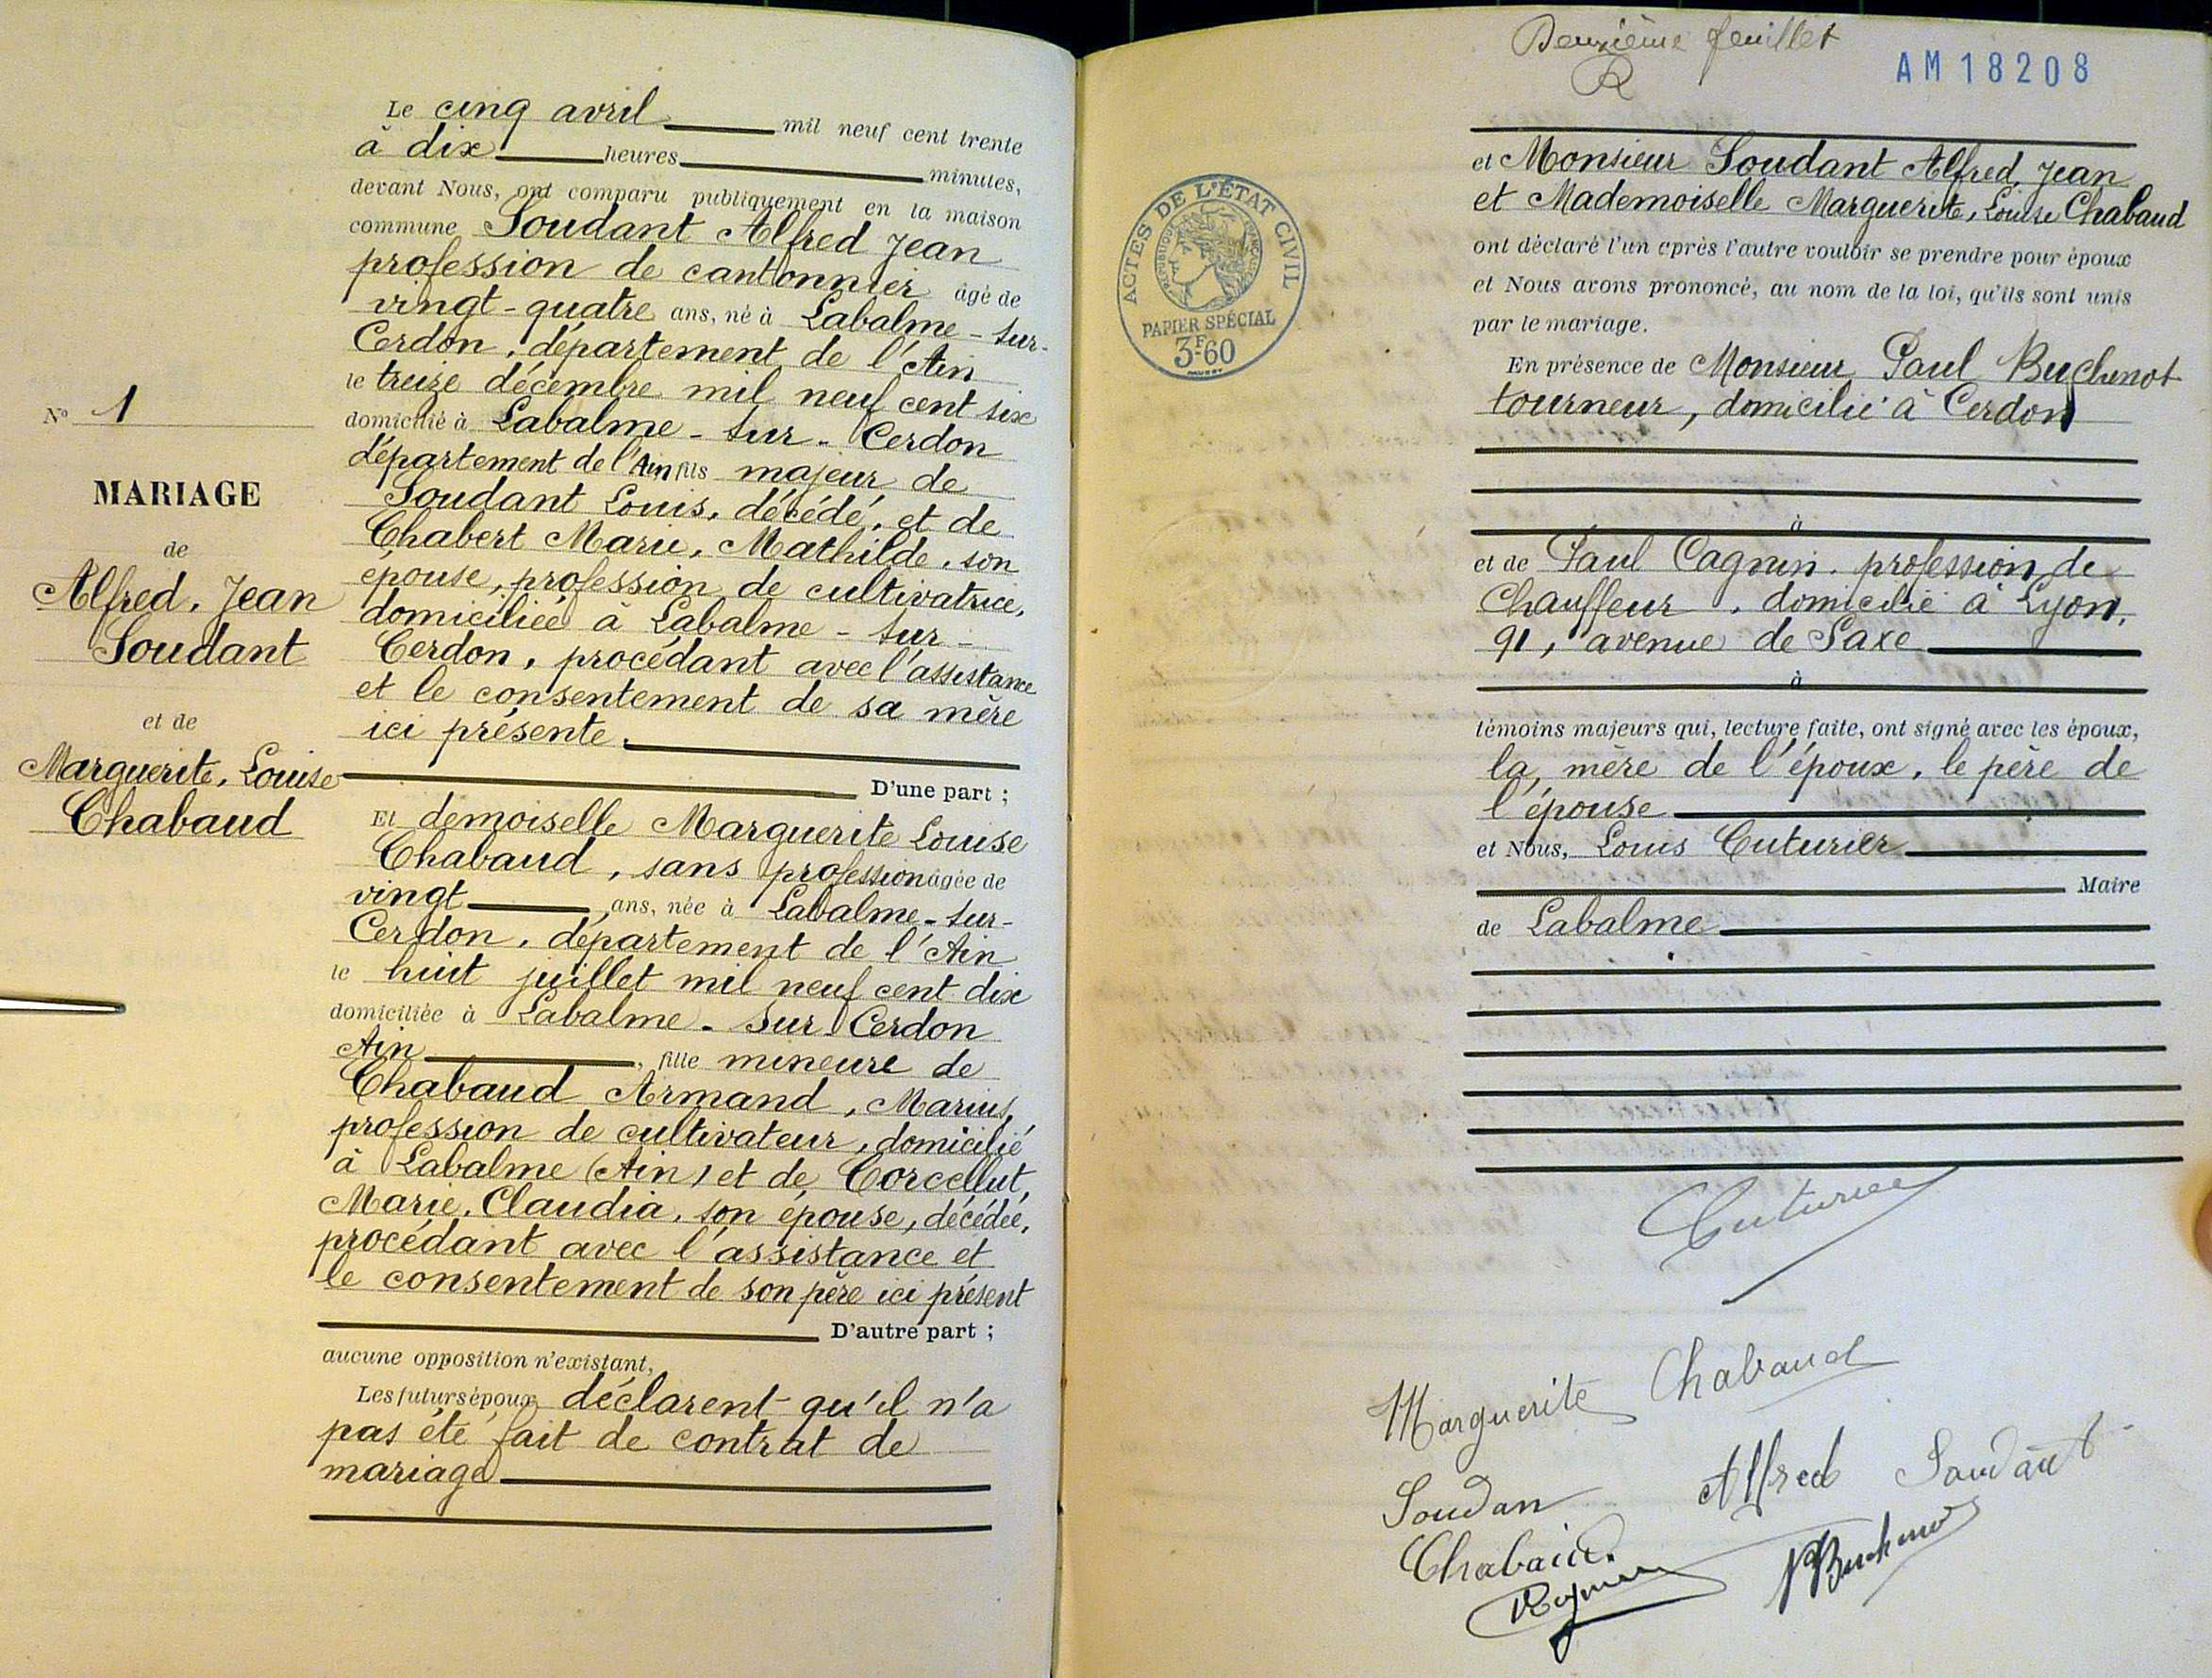 Le cinq avril mil neuf cent trente
à dix heures minutes,
devant Nous, ont comparu publiquement en la maison
commune Soudant Alfred Jean
profession de cantonnier âgé de
vingt-quatre ans, né à Labalme-sur-
Cerdon, département de l'Ain
le treize décembre mil neuf cent six
domicilié à Labalme-sur-Cerdon
département de l'Ain fils majeur de
Soudant Louis, décédé, et de
Chabert Marie, Mathilde, son
épouse, profession de cultivatrice,
domiciliée à Labalme-sur-
Cerdon, procédant avec l'assistance
et le consentement de sa mère
ici présente.
D'une part ;
Et demoiselle Marguerite Louise
Chabaud, sans profession âgée de
vingt ans, née à Labalme-sur-
Cerdon, département de l'Ain
le huit juillet mil neuf cent dix
domiciliée à Labalme-sur Cerdon
Ain, fille mineure de
Chabaud Armand, Marius,
profession de cultivateur, domicilié
à Labalme (Ain) et de Corcellut,
Marie, Claudia, son épouse, décédée,
procédant avec l'assistance et
le consentement de son père ici présent
D'autre part ;
aucune opposition n'existant,
Les futurs époux déclarent qu'il n'a
pas été fait de contrat de
mariage
N° 1
MARIAGE
de
Alfred, Jean
Soudant
et de
Marguerite, Louise
Chabaud
Deuxième feuillet
AM18208
ACTES DE L'ÉTAT CIVIL
RÉPUBLIQUE FRANÇAISE
PAPIER SPÉCIAL
3F60
et Monsieur Soudant Alfred, Jean
et Mademoiselle Marguerite, Louise Chabaud
ont déclaré l'un après l'autre vouloir se prendre pour époux
et Nous avons prononcé, au nom de la loi, qu'ils sont unis
par le mariage.
En présence de Monsieur Paul Buchenot
tourneur, domicilié à Cerdon
à
et de Paul Cagnin, profession de
Chauffeur, domicilié à Lyon,
91, avenue de Saxe
à
témoins majeurs qui, lecture faite, ont signé avec les époux,
la mère de l'époux, le père de
l'épouse
et Nous, Louis Cuturier
Maire
de Labalme
Cuturier
Marguerite Chabaud
Soudan Alfred Soudant
Chabaud